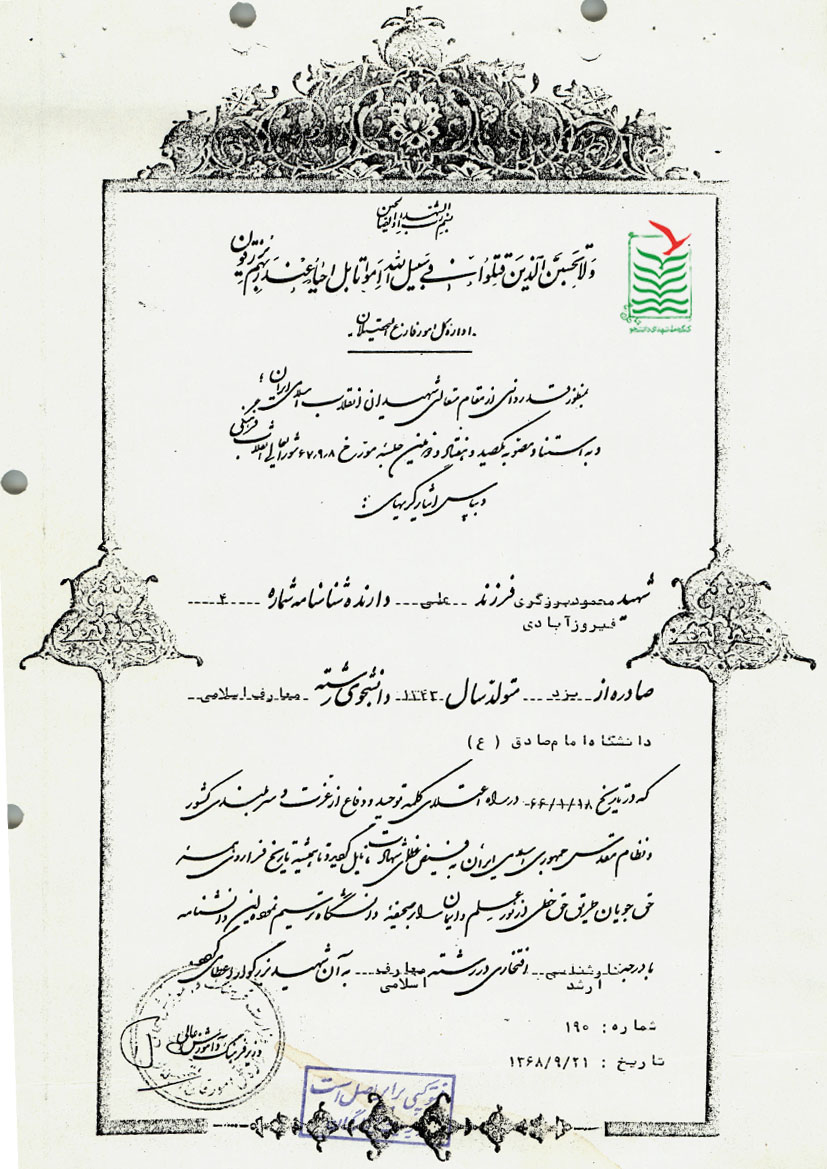 بسم رب الشهداء و الصالحین
ولا تحسبن الذین قتلوا فی سبیل الله امواتا بل احیاء عند ربهم یرزقون
اداره کل امور فارغ التحصیلان
بمنظور قدردانی از مقام متعالی شهیدان انقلاب اسلامی ایران؛
و به استناد مصوبه یکصد و هفتاد و دومین جلسه مورخ ۶۷/۹/۸ شورایعالی انقلاب فرهنگی
و بپاس ایثارگریهای:
شهید محمود برزگری فیروزآبادی فرزند علی دارنده شناسنامه شماره ۴
صادره از یزد متولد سال ۱۳۴۳ دانشجوی رشته معارف اسلامی
دانشگاه امام صادق (ع)
که در تاریخ ۶۶/۱/۱۸ در راه اعتلای کلمه توحید و دفاع از عزت و سربلندی کشور
و نظام مقدس جمهوری اسلامی ایران به فیض عظمای شهادت نایل گردید و تا همیشه تاریخ فراروی همه
حق جویان طریق حق خطی از نور علم و ایمان بر صحیفه دانشگاه ترسیم نموده این دانشنامه
با درجه کارشناسی ارشد افتخاری در رشته معارف اسلامی به آن شهید بزرگوار اعطا می گردد
شماره: ۱۹۰
تاریخ: ۱۳۶۸/۹/۲۱
وزیر فرهنگ و آموزش عالی
فتوکپی برابر اصل است